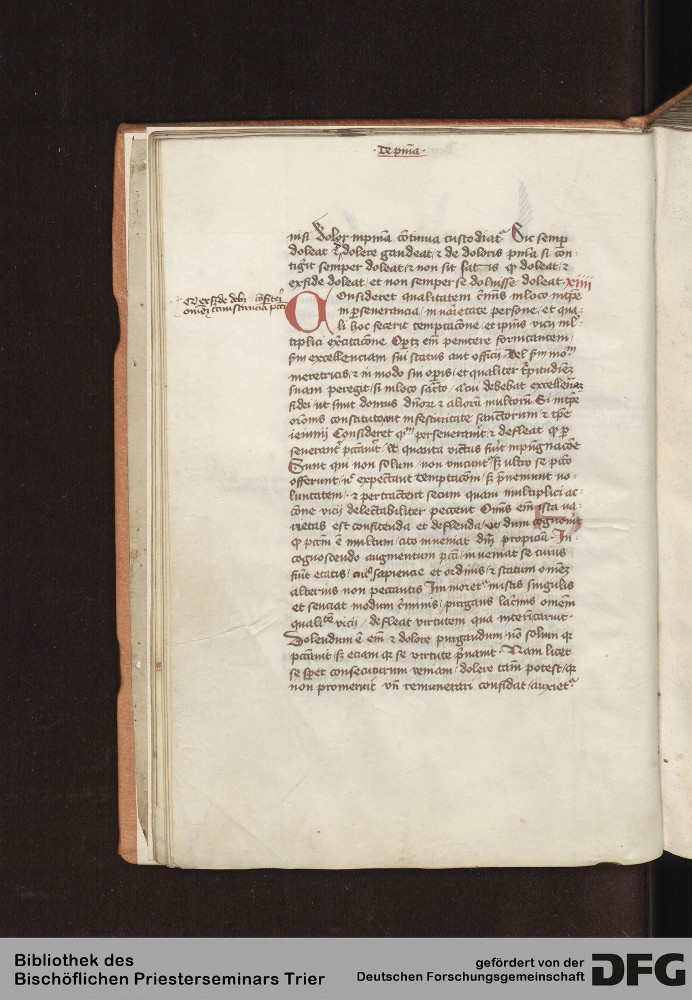 De pnīa
nisi dolor in pnīa continua custodiat. Sic semp
doleat & dolere gaudeat, & de doloris pnīa si con
tigit semper doleat & non sit satis qd doleat &
ex fide doleat, et non semper se doluisse doleat. xiiii
Consideret qualitatem crīnis in loco in tpe
in perseverancia, in varietate persone, et qua
li hoc fecerit temptacōne, et ipius vicii ml
tiplici executacōne. Oportz em penitere fornicantem
sm excellenciam sui status aut officii vel sm mo
meretricis, & in modo sui opis, et qualiter turpitudinez
suam peregit, si in loco sacto, a cui debebat excellencz
fidei, ut sunt domus dnore & aliorū multorū Si in tpe
oronis constituto aut in festivitate sanctorum & tpe
ieiunii Consideret qm perseveravit & defleat qd p
severant peccavit, et quanta victus fuit inpugnacōne
Sunt qui non solum non vincunt sed ultro se pcto
offerunt, nec expectant temptacōnem sed preveniunt vo
luntatem, & pertractent secum quam multiplici ac
cōne vicii delectabiliter peccent Omnis em ista va
rietas est confitenda et deflenda, ut dum cognovit
qd pctm est multum, cito inveniat deum propiciū. In
cognoscendo augmentum pcti, inveniat se cuius
fuit etatis, cuius sapiencie et ordinis, & statum omez
alterius non peccantis Immoret in istis singulis
et senciat modum criminis, purgans lacrimis omem
qualitatem vicii, defleat virtutem qua interim caruit.
Dolendum est em & dolore purgandum non solum qr
peccavit, sed eciam qr se virtute privavit. Nam licet
se speret consecuturum veniam, dolere tamen potest, qr
non promeruit unde remunerari confidat, anxiet
Bibliothek des
Bischöflichen Priesterseminars Trier
gefördert von der
Deutschen Forschungsgemeinschaft
DFG